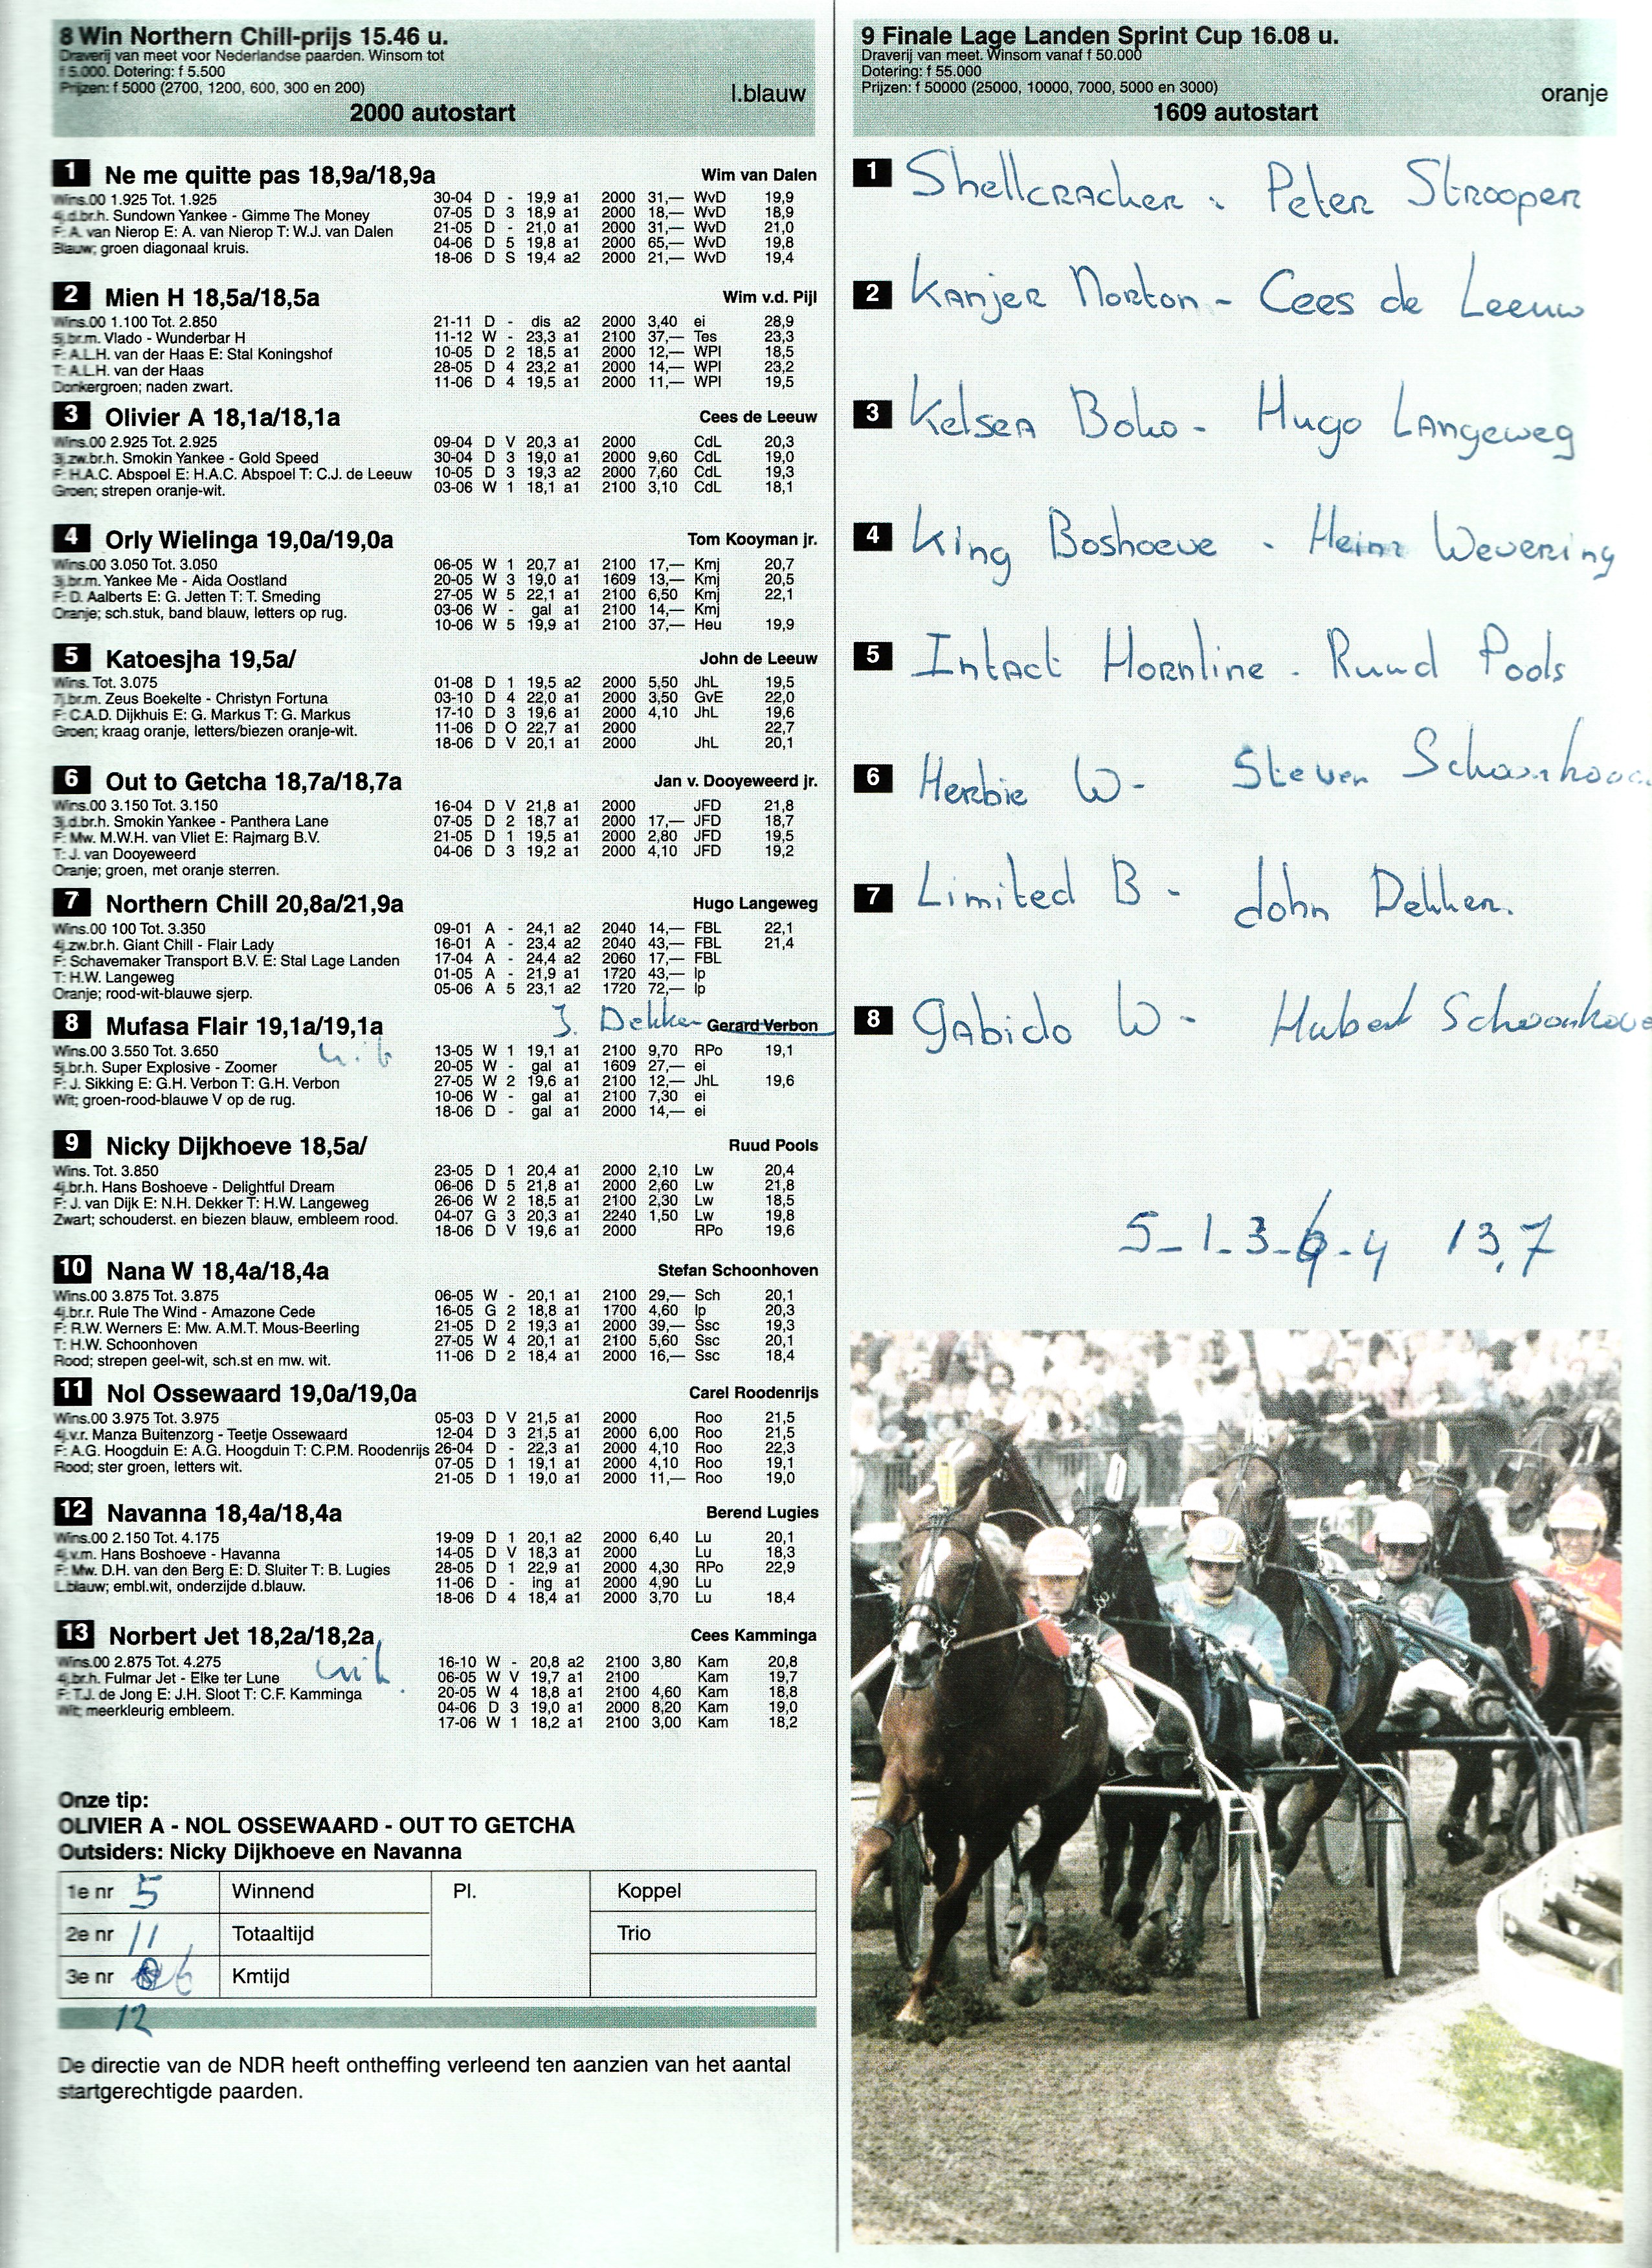 8 Win Northern Chill-prijs 15.46 u.
Draverij van meet voor Nederlandse paarden. Winsom tot
f 5.000. Dotering: f 5.500
Prijzen: f 5000 (2700, 1200, 600, 300 en 200)
l.blauw
2000 autostart
1 Ne me quitte pas 18,9a/18,9a Wim van Dalen
Wins.00 1.925 Tot. 1.925
4j.d.br.h. Sundown Yankee - Gimme The Money
F: A. van Nierop E: A. van Nierop T: W.J. van Dalen
Blauw; groen diagonaal kruis.
30-04 D - 19,9 a1 2000 31,— WvD 19,9
07-05 D 3 18,9 a1 2000 18,— WvD 18,9
21-05 D - 21,0 a1 2000 31,— WvD 21,0
04-06 D 5 19,8 a1 2000 65,— WvD 19,8
18-06 D S 19,4 a2 2000 21,— WvD 19,4
2 Mien H 18,5a/18,5a Wim v.d. Pijl
Wins.00 1.100 Tot. 2.850
5j.br.m. Vlado - Wunderbar H
F: A.L.H. van der Haas E: Stal Koningshof
T: A.L.H. van der Haas
Donkergroen; naden zwart.
21-11 D - dis a2 2000 3,40 ei 28,9
11-12 W - 23,3 a1 2100 37,— Tes 23,3
10-05 D 2 18,5 a1 2000 12,— WPl 18,5
28-05 D 4 23,2 a1 2000 14,— WPl 23,2
11-06 D 4 19,5 a1 2000 11,— WPl 19,5
3 Olivier A 18,1a/18,1a Cees de Leeuw
Wins.00 2.925 Tot. 2.925
3j.zw.br.h. Smokin Yankee - Gold Speed
F: H.A.C. Abspoel E: H.A.C. Abspoel T: C.J. de Leeuw
Groen; strepen oranje-wit.
09-04 D V 20,3 a1 2000 CdL 20,3
30-04 D 3 19,0 a1 2000 9,60 CdL 19,0
10-05 D 3 19,3 a2 2000 7,60 CdL 19,3
03-06 W 1 18,1 a1 2100 3,10 CdL 18,1
4 Orly Wielinga 19,0a/19,0a Tom Kooyman jr.
Wins.00 3.050 Tot. 3.050
3j.br.m. Yankee Me - Aida Oostland
F: D. Aalberts E: G. Jetten T: T. Smeding
Oranje; sch.stuk, band blauw, letters op rug.
06-05 W 1 20,7 a1 2100 17,— Kmj 20,7
20-05 W 3 19,0 a1 1609 13,— Kmj 20,5
27-05 W 5 22,1 a1 2100 6,50 Kmj 22,1
03-06 W - gal a1 2100 14,— Kmj
10-06 W 5 19,9 a1 2100 37,— Heu 19,9
5 Katoesjha 19,5a/ John de Leeuw
Wins. Tot. 3.075
7j.br.m. Zeus Boekelte - Christyn Fortuna
F: C.A.D. Dijkhuis E: G. Markus T: G. Markus
Groen; kraag oranje, letters/biezen oranje-wit.
01-08 D 1 19,5 a2 2000 5,50 JhL 19,5
03-10 D 4 22,0 a1 2000 3,50 GvE 22,0
17-10 D 3 19,6 a1 2000 4,10 JhL 19,6
11-06 D O 22,7 a1 2000 22,7
18-06 D V 20,1 a1 2000 JhL 20,1
6 Out to Getcha 18,7a/18,7a Jan v. Dooyeweerd jr.
Wins.00 3.150 Tot. 3.150
3j.d.br.h. Smokin Yankee - Panthera Lane
F: Mw. M.W.H. van Vliet E: Rajmarg B.V.
T: J. van Dooyeweerd
Oranje; groen, met oranje sterren.
16-04 D V 21,8 a1 2000 JFD 21,8
07-05 D 2 18,7 a1 2000 17,— JFD 18,7
21-05 D 1 19,5 a1 2000 2,80 JFD 19,5
04-06 D 3 19,2 a1 2000 4,10 JFD 19,2
7 Northern Chill 20,8a/21,9a Hugo Langeweg
Wins.00 100 Tot. 3.350
4j.zw.br.h. Giant Chill - Flair Lady
F: Schavemaker Transport B.V. E: Stal Lage Landen
T: H.W. Langeweg
Oranje; rood-wit-blauwe sjerp.
09-01 A - 24,1 a2 2040 14,— FBL 22,1
16-01 A - 23,4 a2 2040 43,— FBL 21,4
17-04 A - 24,4 a2 2060 17,— FBL
01-05 A - 21,9 a1 1720 43,— Ip
05-06 A 5 23,1 a2 1720 72,— Ip
8 Mufasa Flair 19,1a/19,1a J. Dekker Gerard Verbon
Wins.00 3.550 Tot. 3.650
5j.br.h. Super Explosive - Zoomer
F: J. Sikking E: G.H. Verbon T: G.H. Verbon
Wit; groen-rood-blauwe V op de rug.
13-05 W 1 19,1 a1 2100 9,70 RPo 19,1
20-05 W - gal a1 1609 27,— ei
27-05 W 2 19,6 a1 2100 12,— JhL 19,6
10-06 W - gal a1 2100 7,30 ei
18-06 D - gal a1 2000 14,— ei
9 Nicky Dijkhoeve 18,5a/ Ruud Pools
Wins. Tot. 3.850
4j.br.h. Hans Boshoeve - Delightful Dream
F: J. van Dijk E: N.H. Dekker T: H.W. Langeweg
Zwart; schouderst. en biezen blauw, embleem rood.
23-05 D 1 20,4 a1 2000 2,10 Lw 20,4
06-06 D 5 21,8 a1 2000 2,60 Lw 21,8
26-06 W 2 18,5 a1 2100 2,30 Lw 18,5
04-07 G 3 20,3 a1 2240 1,50 Lw 19,8
18-06 D V 19,6 a1 2000 RPo 19,6
10 Nana W 18,4a/18,4a Stefan Schoonhoven
Wins.00 3.875 Tot. 3.875
4j.br.r. Rule The Wind - Amazone Cede
F: R.W. Werners E: Mw. A.M.T. Mous-Beerling
T: H.W. Schoonhoven
Rood; strepen geel-wit, sch.st en mw. wit.
06-05 W - 20,1 a1 2100 29,— Sch 20,1
16-05 G 2 18,8 a1 1700 4,60 Ip 20,3
21-05 D 2 19,3 a1 2000 39,— Ssc 19,3
27-05 W 4 20,1 a1 2100 5,60 Ssc 20,1
11-06 D 2 18,4 a1 2000 16,— Ssc 18,4
11 Nol Ossewaard 19,0a/19,0a Carel Roodenrijs
Wins.00 3.975 Tot. 3.975
4j.v.r. Manza Buitenzorg - Teetje Ossewaard
F: A.G. Hoogduin E: A.G. Hoogduin T: C.P.M. Roodenrijs
Rood; ster groen, letters wit.
05-03 D V 21,5 a1 2000 Roo 21,5
12-04 D 3 21,5 a1 2000 6,00 Roo 21,5
26-04 D - 22,3 a1 2000 4,10 Roo 22,3
07-05 D 1 19,1 a1 2000 4,10 Roo 19,1
21-05 D 1 19,0 a1 2000 11,— Roo 19,0
12 Navanna 18,4a/18,4a Berend Lugies
Wins.00 2.150 Tot. 4.175
4j.v.m. Hans Boshoeve - Havanna
F: Mw. D.H. van den Berg E: D. Sluiter T: B. Lugies
L.blauw; embl.wit, onderzijde d.blauw.
19-09 D 1 20,1 a2 2000 6,40 Lu 20,1
14-05 D V 18,3 a1 2000 Lu 18,3
28-05 D 1 22,9 a1 2000 4,30 RPo 22,9
11-06 D - ing a1 2000 4,90 Lu
18-06 D 4 18,4 a1 2000 3,70 Lu 18,4
13 Norbert Jet 18,2a/18,2a Cees Kamminga
Wins.00 2.875 Tot. 4.275
4j.br.h. Fulmar Jet - Elke ter Lune
F: T.J. de Jong E: J.H. Sloot T: C.F. Kamminga
Wit; meerkleurig embleem.
16-10 W - 20,8 a2 2100 3,80 Kam 20,8
06-05 W V 19,7 a1 2100 Kam 19,7
20-05 W 4 18,8 a1 2100 4,60 Kam 18,8
04-06 D 3 19,0 a1 2000 8,20 Kam 19,0
17-06 W 1 18,2 a1 2100 3,00 Kam 18,2
Onze tip:
OLIVIER A - NOL OSSEWAARD - OUT TO GETCHA
Outsiders: Nicky Dijkhoeve en Navanna
1e nr 5 Winnend Pl. Koppel
2e nr 11 Totaaltijd Trio
3e nr 6 Kmtijd
12
De directie van de NDR heeft ontheffing verleend ten aanzien van het aantal
startgerechtigde paarden.
9 Finale Lage Landen Sprint Cup 16.08 u.
Draverij van meet. Winsom vanaf f 50.000
Dotering: f 55.000
Prijzen: f 50000 (25000, 10000, 7000, 5000 en 3000)
oranje
1609 autostart
1 Shellcracker - Peter Strooper
2 Kanjer Norton - Cees de Leeuw
3 Kelsea Boko - Hugo Langeweg
4 King Boshoeve - Heinz Wevering
5 Intact Hornline - Ruud Pools
6 Herbie W - Steven Schoonhoven
7 Limited B - John Dekker.
8 Gabido W - Hubert Schoonhove
5-1-3-6-4 13,7